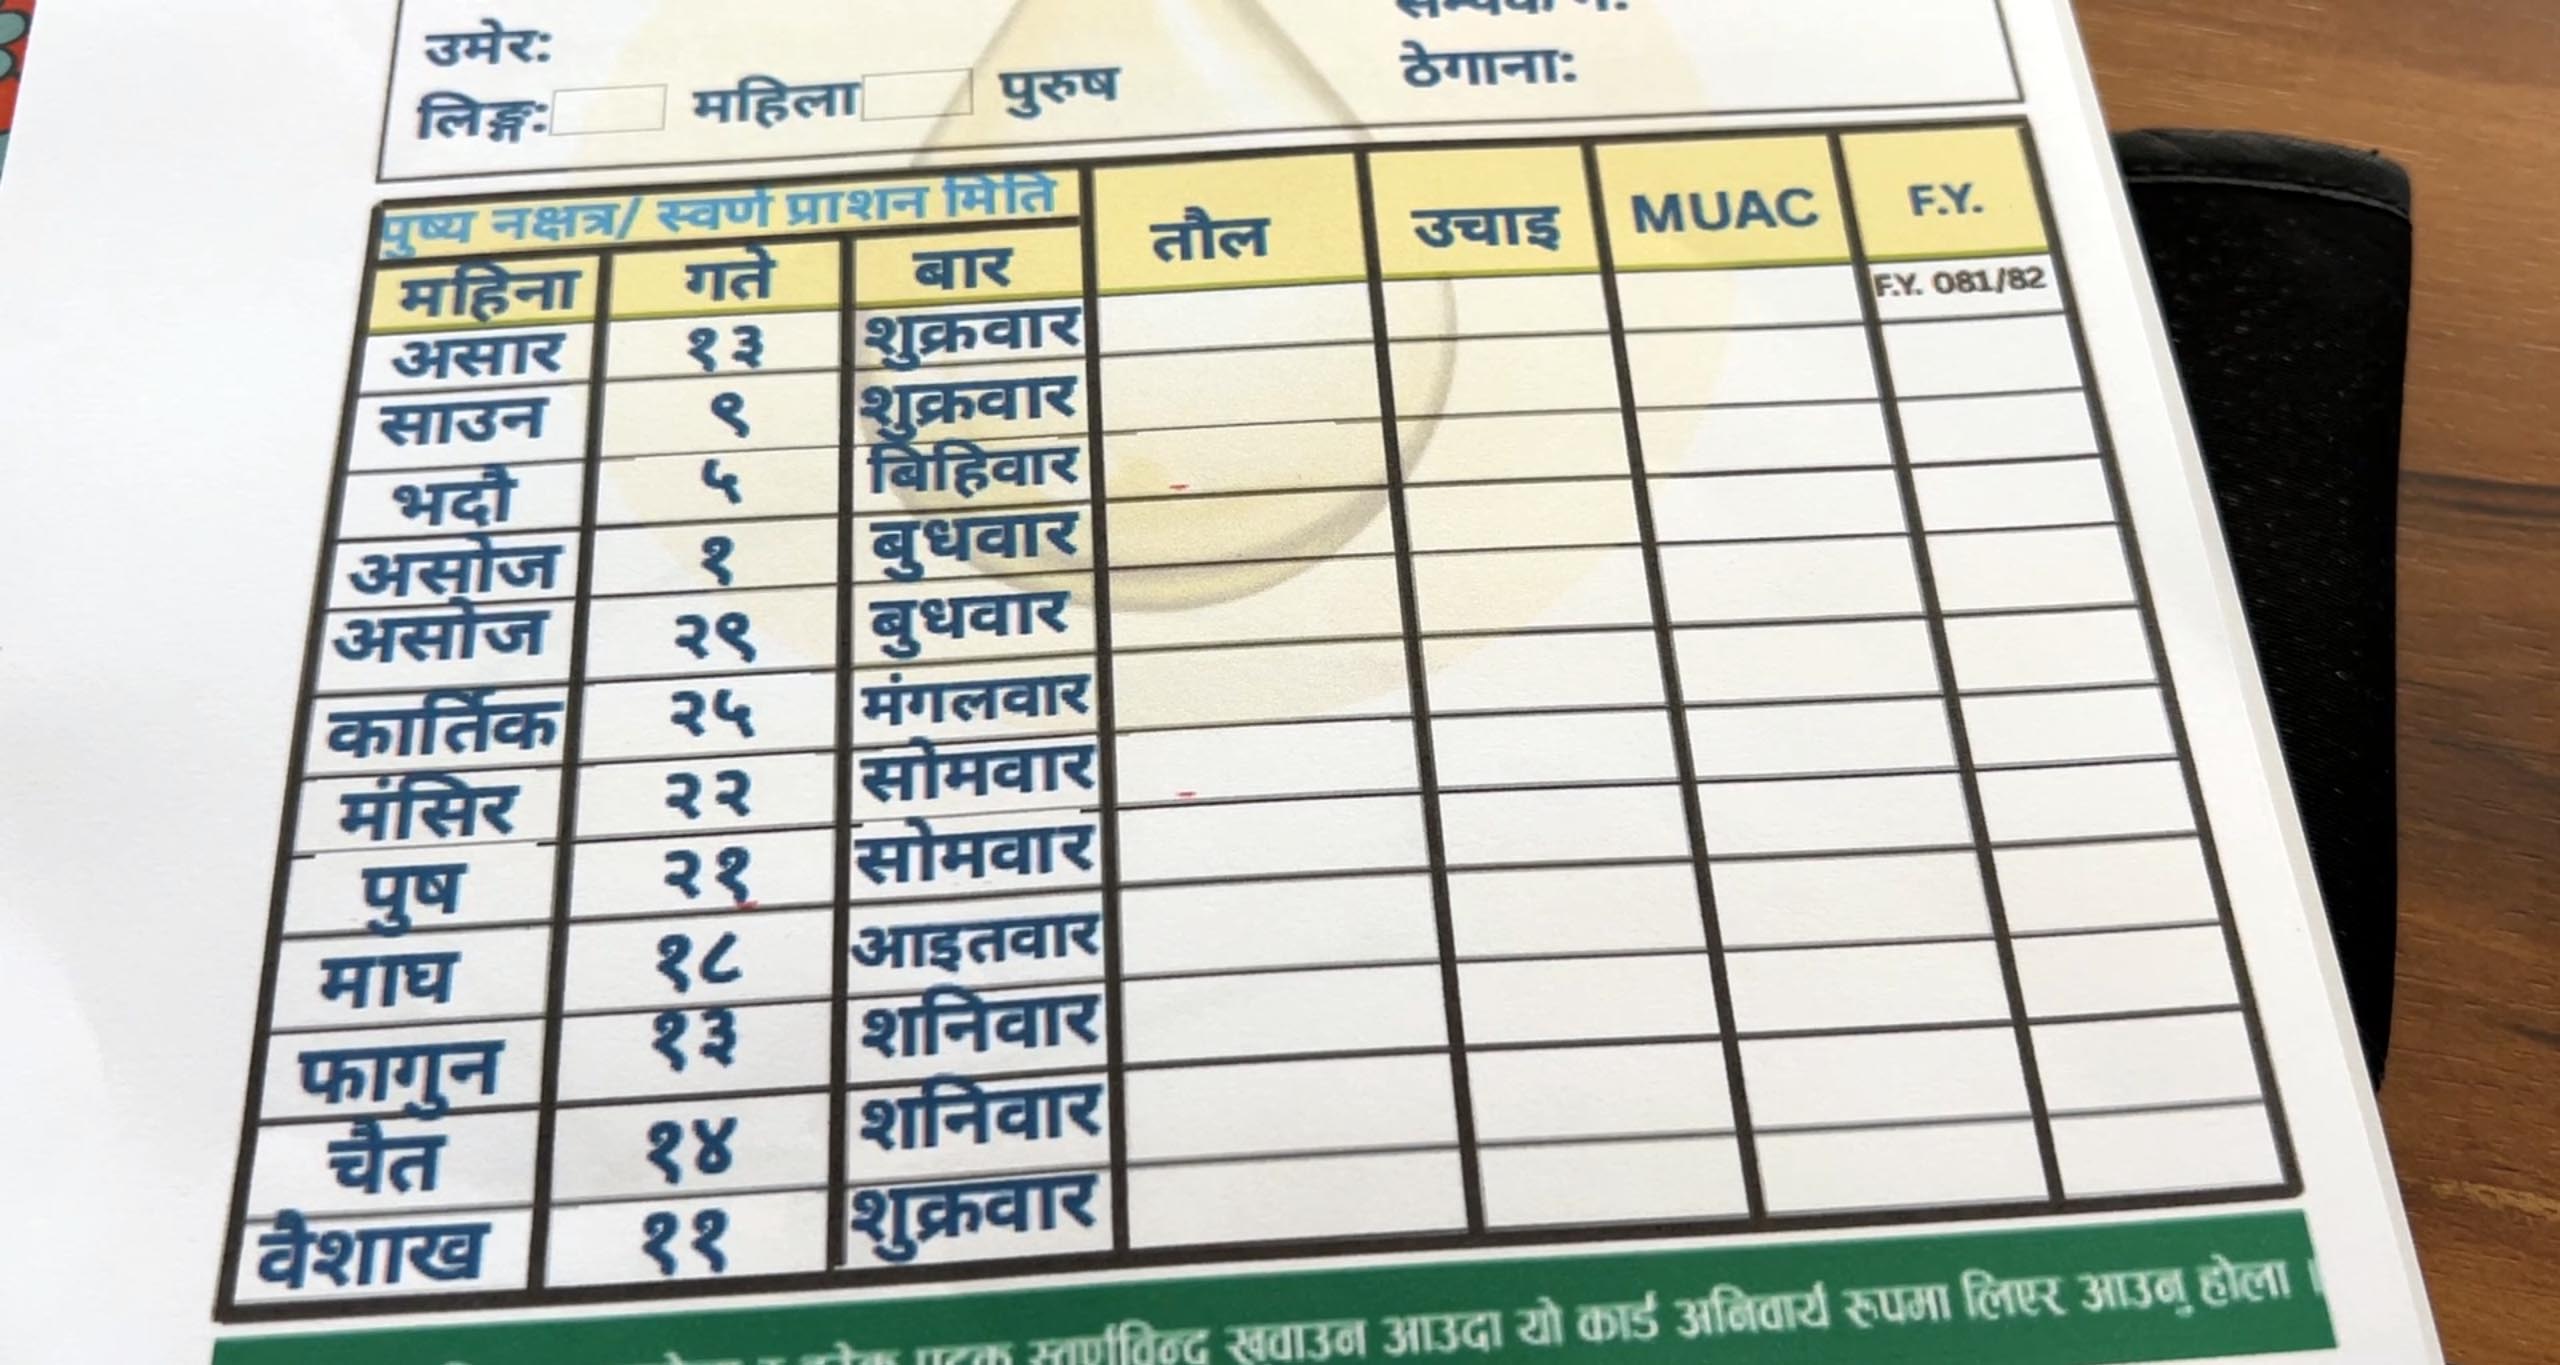 उमेर:
ठेगाना:
लिङ्ग: महिला पुरुष
पुष्य नक्षत्र/ स्वर्ण प्राशन मिति तौल उचाइ MUAC F.Y.
महिना गते बार
F.Y. 081/82
असार १३ शुक्रवार
साउन ९ शुक्रवार
भदौ ५ बिहिवार
असोज १ बुधवार
असोज २९ बुधवार
कार्तिक २५ मंगलवार
मंसिर २२ सोमवार
पुष २१ सोमवार
माघ १८ आइतवार
फागुन १३ शनिवार
चैत १४ शनिवार
वैशाख ११ शुक्रवार
खुवाउन आउदा यो कार्ड अनिवार्य रूपमा लिएर आउनु होला ।